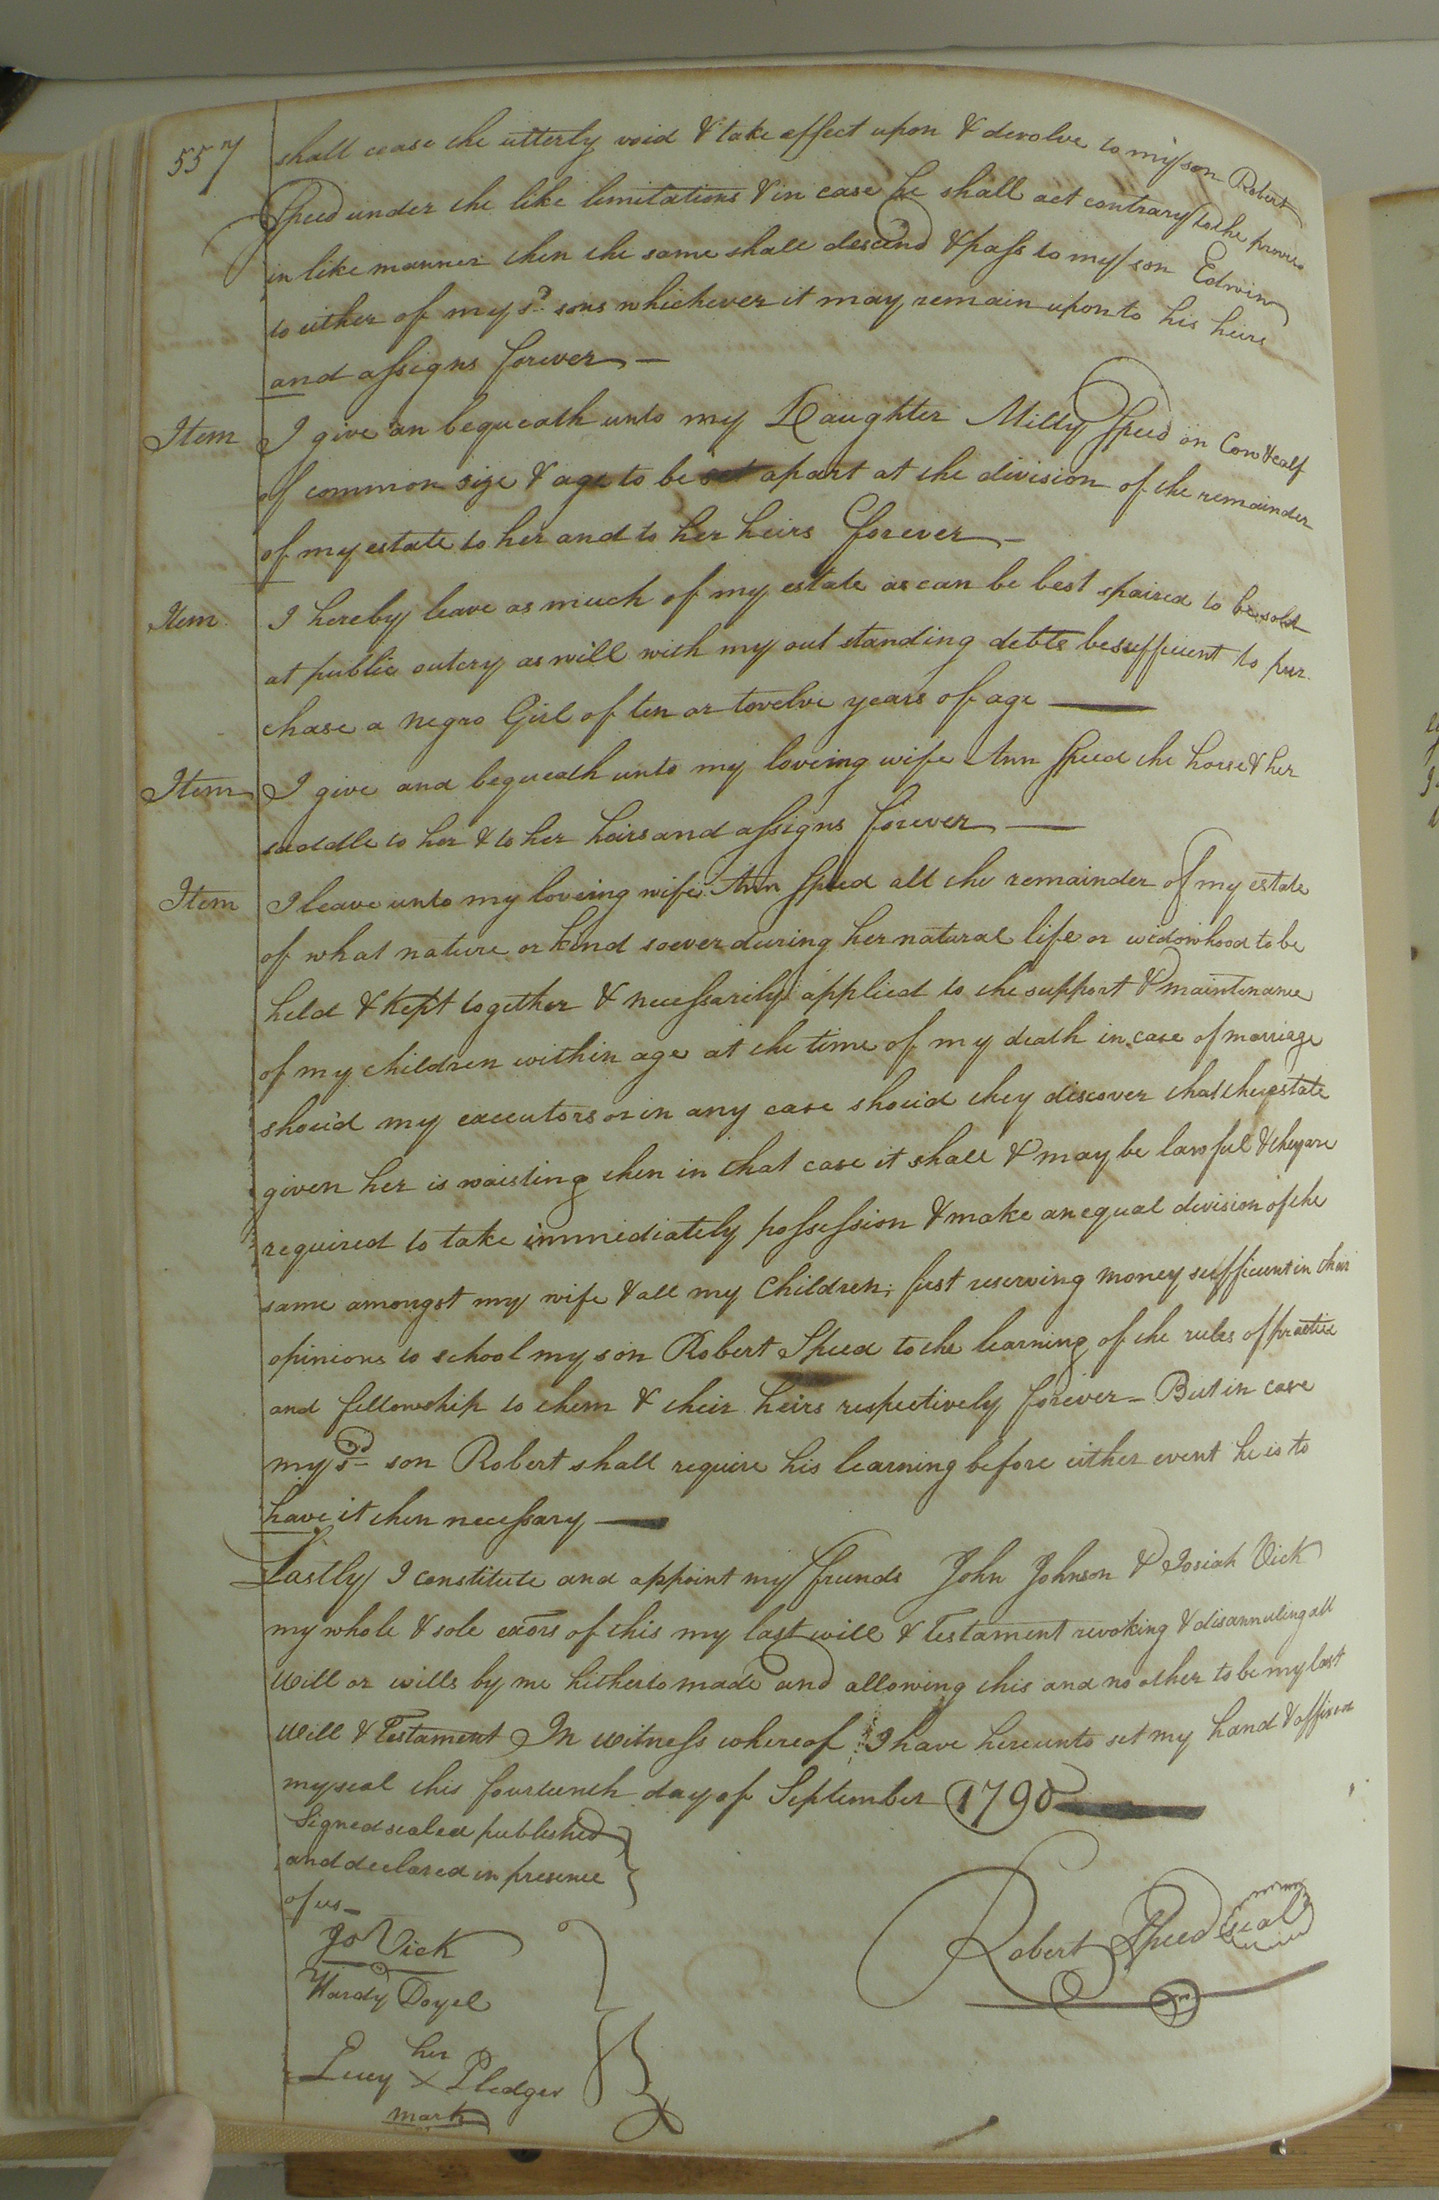 557
shall cease the utterly void & take effect upon & devolve to my son Robert
Speed under the like limitations & in case he shall act contrary to the proviso
in like manner then the same shall descend & pass to my son Edwin
to either of my sd. sons whichever it may remain upon to his heirs
and assigns forever —
Item I give an bequeath unto my Daughter Milly Speed on Cow & calf
of common size & age to be set apart at the division of the remainder
of my estate to her and to her heirs forever —
Item. I hereby leave as much of my estate as can be best spaired to be sold
at public outcry as will with my out standing debts be sufficient to pur
chase a negro Girl of ten or twelve years of age —
Item I give and bequeath unto my loveing wife Ann Speed the horse & her
saddle to her & to her heirs and assigns forever —
Item I leave unto my loveing wife Ann Speed all the remainder of my estate
of what nature or kind soever during her natural life or widowhood to be
held & kept together & necessarily applied to the support & maintenance
of my children within age at the time of my death in case of marriage
shou'd my executors or in any case shou'd they discover that the estate
given her is waisting then in that case it shall & may be lawful & they are
required to take immediately possession & make an equal division of the
same amongst my wife & all my Children, first reserving money sufficient in their
opinions to school my son Robert Speed to the learning of the rules of practice
and fellowship to them & their heirs respectively forever – But in case
my sd son Robert shall require his learning before either event he is to
have it then necessary —
Lastly I constitute and appoint my friends John Johnson & Josiah Vick
my whole & sole exors of this my last will & Testament revoking & disannuling all
Will or wills by me hitherto made and allowing this and no other to be my last
Will & Testament In witness whereof I have hereunto set my hand & affixed
my seal this fourteenth day of September 1790
Signed sealed published
and declared in presence
of us —
Jo Vick
Robert Speed seal
Hardy Doyel
her
Lucy X Pledger
mark